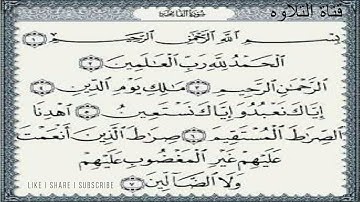 قناة التلاوه
سُورَةُ الفَاتِحَةِ
بِسْمِ ٱللَّهِ ٱلرَّحْمَٰنِ ٱلرَّحِيمِ ١
ٱلْحَمْدُ لِلَّهِ رَبِّ ٱلْعَٰلَمِينَ ٢
ٱلرَّحْمَٰنِ ٱلرَّحِيمِ ٣ مَٰلِكِ يَوْمِ ٱلدِّينِ ٤
إِيَّاكَ نَعْبُدُ وَإِيَّاكَ نَسْتَعِينُ ٥ ٱهْدِنَا
ٱلصِّرَٰطَ ٱلْمُسْتَقِيمَ ٦ صِرَٰطَ ٱلَّذِينَ أَنْعَمْتَ
عَلَيْهِمْ غَيْرِ ٱلْمَغْضُوبِ عَلَيْهِمْ
وَلَا ٱلضَّآلِّينَ ٧
LIKE | SHARE | SUBSCRIBE